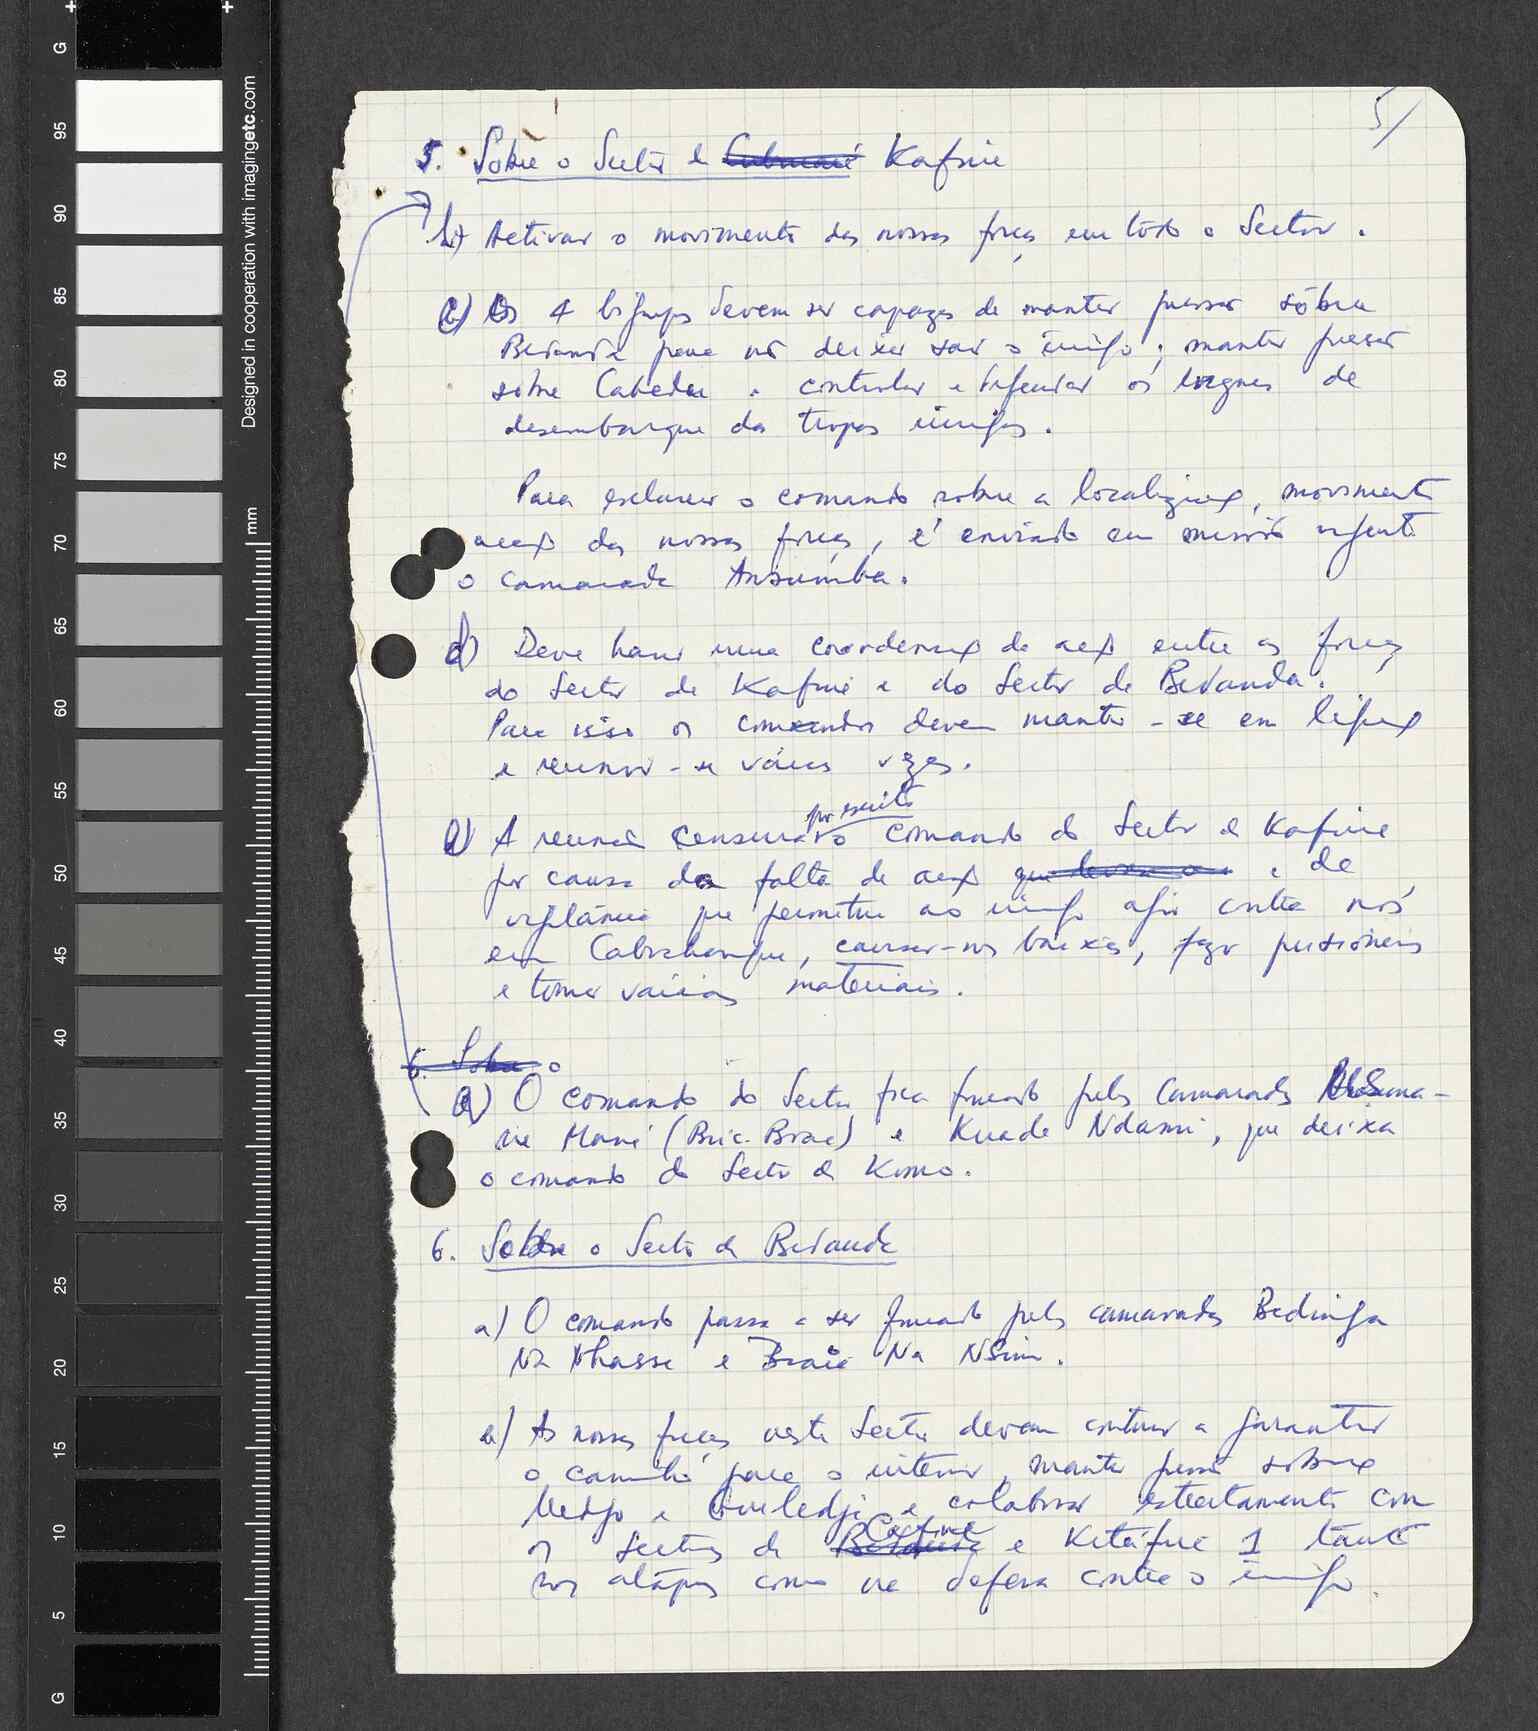 5/
5. Sobre o Sector de Kafine
b) Activar o movimento das nossas forças em todo o Sector.
c) Os 4 bigrupos devem ser capazes de manter pressão sôbre
Bedanda para não deixar sair o inimigo; manter pressão
sobre Cabedu e controlar e defender os lugares de
desembarque das tropas inimigas.
Para esclarecer o comando sobre a localização, movimento
acção das nossas forças, é enviado em missão urgente
o camarada Ansumba.
d) Deve haver uma coordenação de acção entre as forças
do Sector de Kafine e do Sector de Bedanda.
Para isso os comandos devem manter-se em ligação
e reunir-se várias vezes.
por escrito
e) A reunião censura o comando do Sector de Kafine
por causa da falta de acção e de
vigilância que permitiu ao inimigo agir contra nós
em Cabochanque, causar-nos baixas, fazer prisioneiros
e tomar vários materiais.
6. Sobre o
a) O comando do Sector fica formado pelos camaradas
ne Mané (Bric-Brac) e Kuade Ndami, que deixa
o comando do Sector de Komo.
6. Sobre o Sector de Bedanda
a) O comando passa a ser formado pelos camaradas Bedinga
Na Nhasse e Braié Na NSim.
b) As nossas forças neste Sector devem continuar a garantir
o caminho para o interior, manter pressão sobre
Medjo e Guiledje e colaborar estreitamente com
Cafine
os Sectores de e Kitáfine 1 tanto
nos ataques como na defesa contra o inimigo.
G
95
90
85
80
75
70
65
60
55
50
45
40
35
30
25
20
15
10
5
G
mm
Designed in cooperation with imagingetc.com